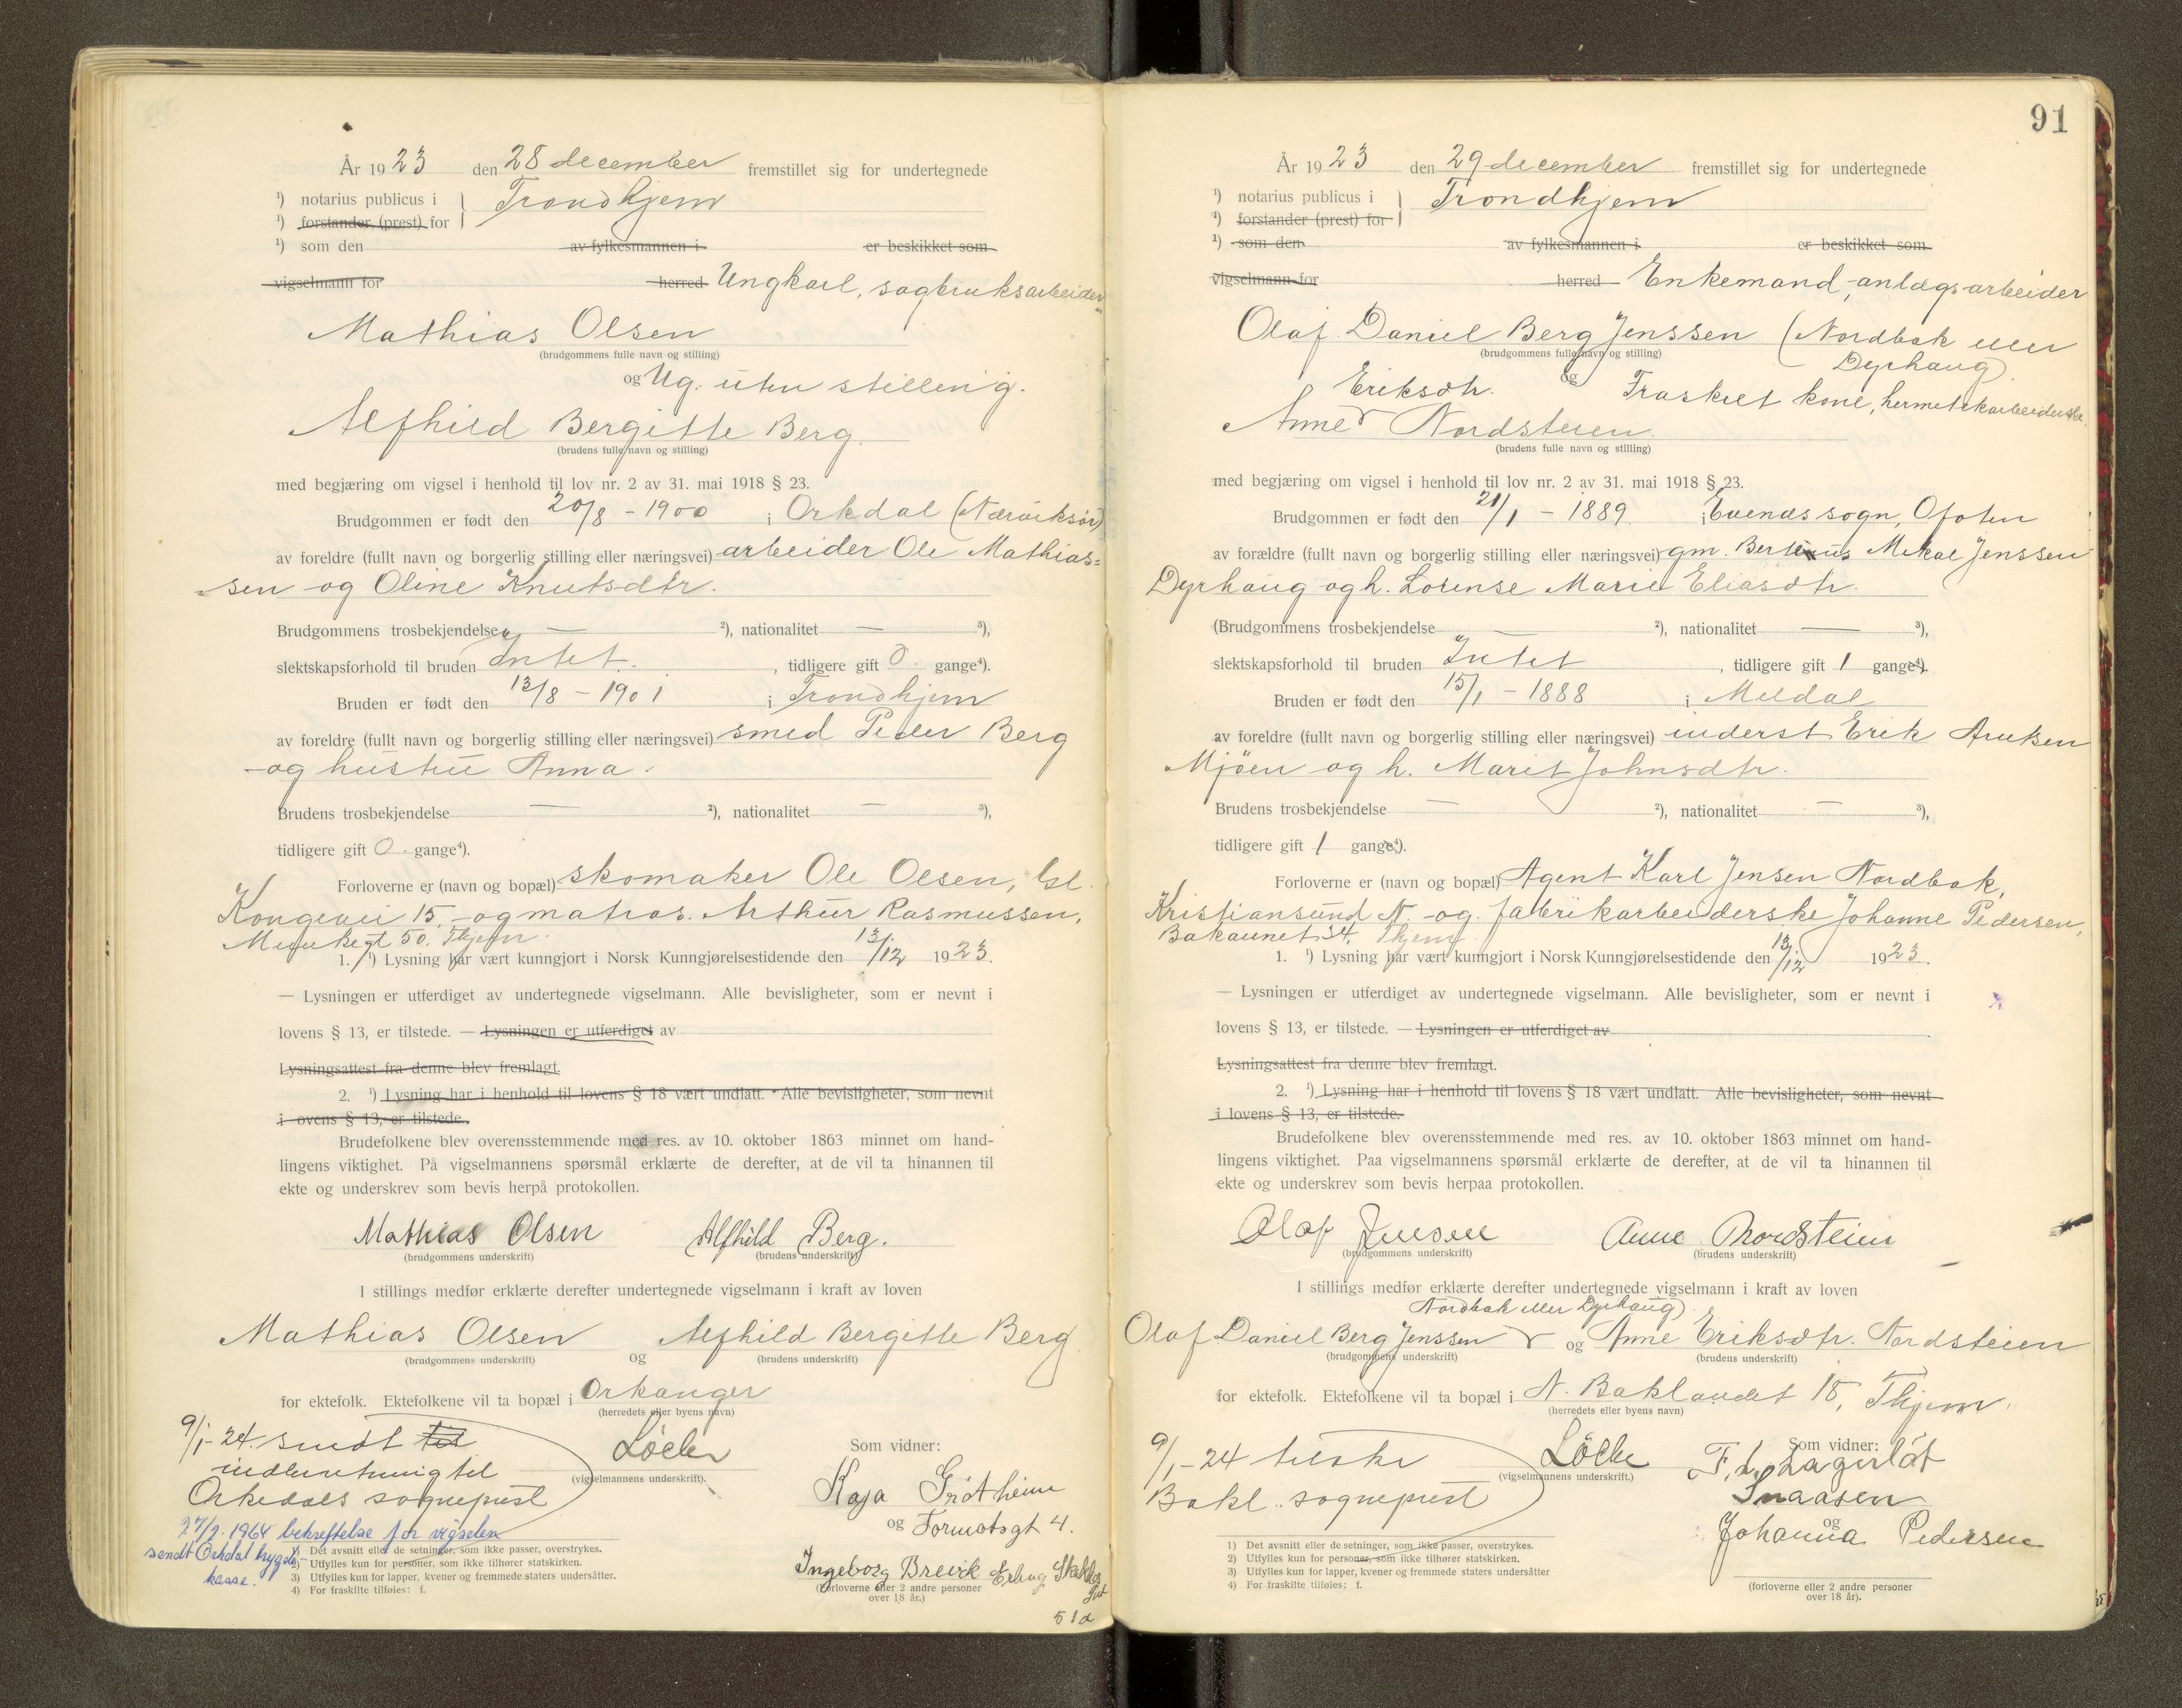 År 1923 den 28 december fremstillet sig for undertegnede
¹) notarius publicus i } Trondhjem
¹) forstander (prest) for
¹) som den av fylkesmannen i er beskikket som
vigselmann for herred Ungkarl, sagbruksarbeider
Mathias Olsen
(brudgommens fulle navn og stilling)
og Ug. uten stilling.
Alfhild Bergitte Berg.
(brudens fulle navn og stilling)
med begjæring om vigsel i henhold til lov nr. 2 av 31. mai 1918 § 23.
Brudgommen er født den 20/8 - 1900 i Orkdal (Nærviksør)
av foreldre (fullt navn og borgerlig stilling eller næringsvei) arbeider Ole Mathias=
sen og Oline Knutsdtr.
Brudgommens trosbekjendelse — ²), nationalitet — ³),
slektskapsforhold til bruden Intet. , tidligere gift 0 gange⁴).
Bruden er født den 13/8 - 1901 i Trondhjem
av foreldre (fullt navn og borgerlig stilling eller næringsvei) smed Peder Berg
og hustru Anna.
Brudens trosbekjendelse — ²), nationalitet — ³),
tidligere gift 0 gange⁴).
Forloverne er (navn og bopæl) skomaker Ole Olsen, Gl.
Kongevei 15, og matros. Arthur Rasmussen,
Munkegt 50. Thjem.
1. ¹) Lysning har vært kunngjort i Norsk Kunngjørelsestidende den 13/12 1923.
— Lysningen er utferdiget av undertegnede vigselmann. Alle bevisligheter, som er nevnt i
lovens § 13, er tilstede. — Lysningen er utferdiget av
Lysningsattest fra denne blev fremlagt.
2. ¹) Lysning har i henhold til lovens § 18 vært undlatt. Alle bevisligheter, som nevnt
i ovens § 13, er tilstede.
Brudefolkene blev overensstemmende med res. av 10. oktober 1863 minnet om hand-
lingens viktighet. På vigselmannens spørsmål erklærte de derefter, at de vil ta hinannen til
ekte og underskrev som bevis herpå protokollen.
Mathias Olsen Alfhild Berg.
(brudgommens underskrift) (brudens underskrift)
I stillings medfør erklærte derefter undertegnede vigselmann i kraft av loven
Mathias Olsen og Alfhild Bergitte Berg
(brudgommens underskrift) (brudens underskrift)
for ektefolk. Ektefolkene vil ta bopæl i Orkanger
(herredets eller byens navn)
9/1-24. sendt til
indberetning til
Orkedals sogneprest
27/2. 1964 bekreftelse for vigselen
sendt Orkdal trygde-
kasse.
Løcke
(vigselmannens underskrift).
Som vidner:
Kaja Grøtheim
og Tormodsgt 4.
Ingeborg Brevik Erling
(forloverne eller 2 andre personer
over 18 år.)
51a
1) Det avsnitt eller de setninger, som ikke passer, overstrykes.
2) Utfylles kun for personer, som ikke tilhører statskirken.
3) Utfylles kun for lapper, kvener og fremmede staters undersåtter.
4) For fraskilte tilføies: f.
91
År 1923 den 29 december fremstillet sig for undertegnede
¹) notarius publicus i } Trondhjem
¹) forstander (prest) for
¹) som den av fylkesmannen i er beskikket som
vigselmann for herred Enkemand, anlægsarbeider
Olaf Daniel Berg Jenssen (Nordbak eller
Dyrhaug)
(brudgommens fulle navn og stilling)
Eriksdtr. og Fraskilt kone, hermetikarbeiderske
Anne Nordsteien
(brudens fulle navn og stilling)
med begjæring om vigsel i henhold til lov nr. 2 av 31. mai 1918 § 23.
Brudgommen er født den 21/1 - 1889 i Evenæs sogn, Ofoten
av forældre (fullt navn og borgerlig stilling eller næringsvei) gm. Bertinus Mikal Jenssen
Dyrhaug og h. Lorense Marie Eliasdtr.
(Brudgommens trosbekjendelse — ²), nationalitet — ³),
slektskapsforhold til bruden Intet , tidligere gift 1 gange⁴).
Bruden er født den 15/1 - 1888 i Meldal
av foreldre (fullt navn og borgerlig stilling eller næringsvei) inderst Erik Arntsen
Mjøen og h. Marit Johnsdtr.
Brudens trosbekjendelse — ²), nationalitet — ³),
tidligere gift 1 gange⁴).
Forloverne er (navn og bopæl) Agent Karl Jensen Nordbak,
Kristiansund N. og fabrikarbeiderske Johanne Pedersen,
Bakaunet 34, Thjem
1. ¹) Lysning har vært kunngjort i Norsk Kunngjørelsestidende den 13/12 1923.
— Lysningen er utferdiget av undertegnede vigselmann. Alle bevisligheter, som er nevnt i
lovens § 13, er tilstede. — Lysningen er utferdiget av
Lysningsattest fra denne blev fremlagt.
2. ¹) Lysning har i henhold til lovens § 18 vært undlatt. Alle bevisligheter, som nevnt
i lovens § 13, er tilstede.
Brudefolkene blev overensstemmende med res. av 10. oktober 1863 minnet om hand-
lingens viktighet. Paa vigselmannens spørsmål erklærte de derefter, at de vil ta hinannen til
ekte og underskrev som bevis herpaa protokollen.
Olaf Jensen Anne Nordsteien
(brudgommens underskrift) (brudens underskrift)
I stillings medfør erklærte derefter undertegnede vigselmann i kraft av loven
Nordbak eller Dyrhaug)
Olaf Daniel Berg Jenssen og Anne Eriksdtr. Nordsteien
(brudgommens underskrift) (brudens underskrift)
for ektefolk. Ektefolkene vil ta bopæl i N. Baklandet 18, Thjem.
(herredets eller byens navn)
9/1-24
Bakl. sogneprest
Löcke
(vigselmannens underskrift.)
Som vidner:
F. L. Lagerlöf
Snaasen
og
Johanna Pedersen
(forloverne eller 2 andre personer
over 18 år).
1) Det avsnitt eller de setninger, som ikke passer, overstrykes.
2) Utfylles kun for personer, som ikke tilhører statskirken.
3) Utfylles kun for lapper, kvener og fremmede staters undersåtter
4) For fraskilte tilføies: f.